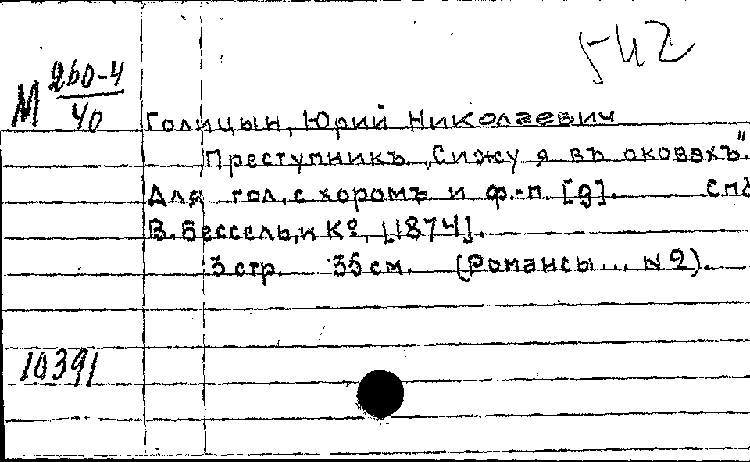 542
М 260-4
40
Голицын, Юрий Николаевич
Преступникъ „Сижу я въ оковахъ".
Для гол. с хоромъ и ф.-п. [g]. Спб
В. Бессель и К⁰, [1874].
3 стр. 35 см. (Романсы... N 2).
10391